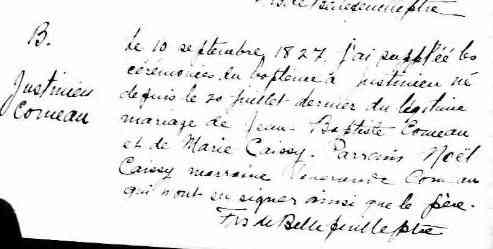 B.
Justinien
Comeau
Le 10 septembre 1827, j'ai suppléé les
cérémonies du baptême à Justinien né
depuis le 20 juillet dernier du légitime
mariage de Jean-Baptiste Comeau
et de Marie Caissy. Parrain Noël
Caissy marraine Venerande Comeau
qui n'ont su signer ainsi que le père.
Frs de Bellefeuille ptre